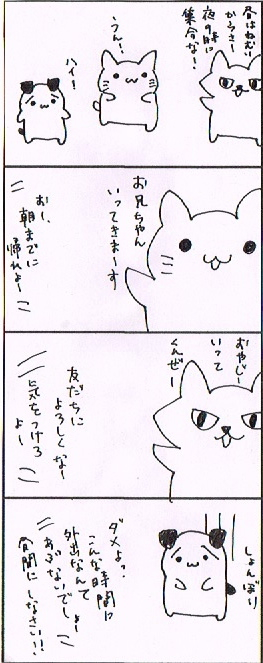 昼はねむい
からさー
夜の9時に
集合な!
うん!
ハイ!
お兄ちゃん
いってきまーす
おー、
朝までに
帰れよー
おやじー
いって
くんぜー
友だちに
よろしくなー
気をつけろ
よー
しょんぼり
ダメよっ!
こんな時間に
外出なんて
あぶないでしょー
昼間にしなさい!!